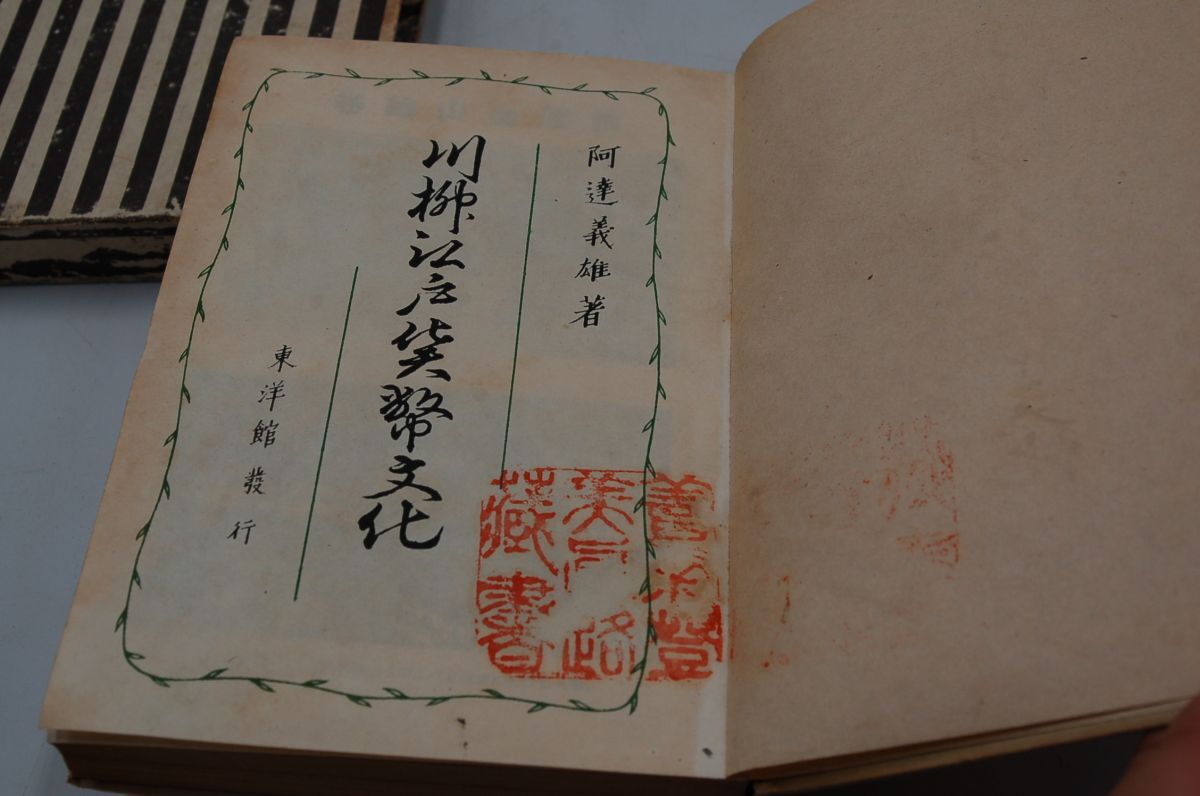 阿達義雄著
川柳江戸貨幣文化
東洋館發行
藏書